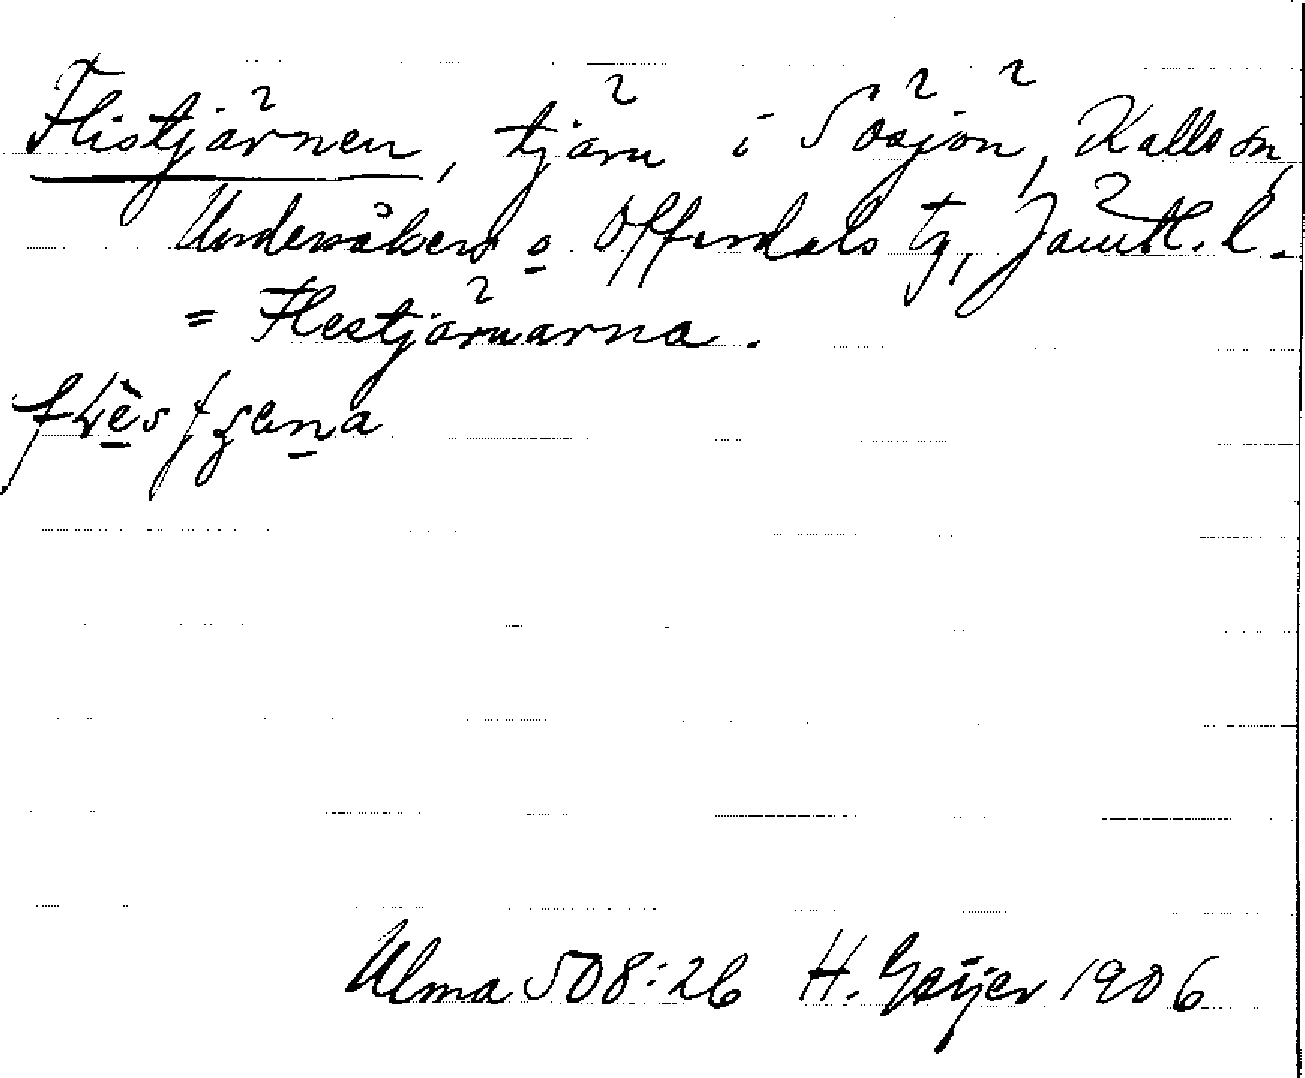 Flistjärnen, tjärn i Sösjön, Kalls sn,
Undersåkers o. Offerdals tg, Jämtl. l.
= Flestjärnarna.
Ulma 508:26 H. Geijer 1906